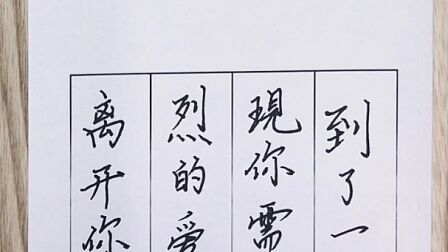 到了一
現你需
烈的爱
离开你